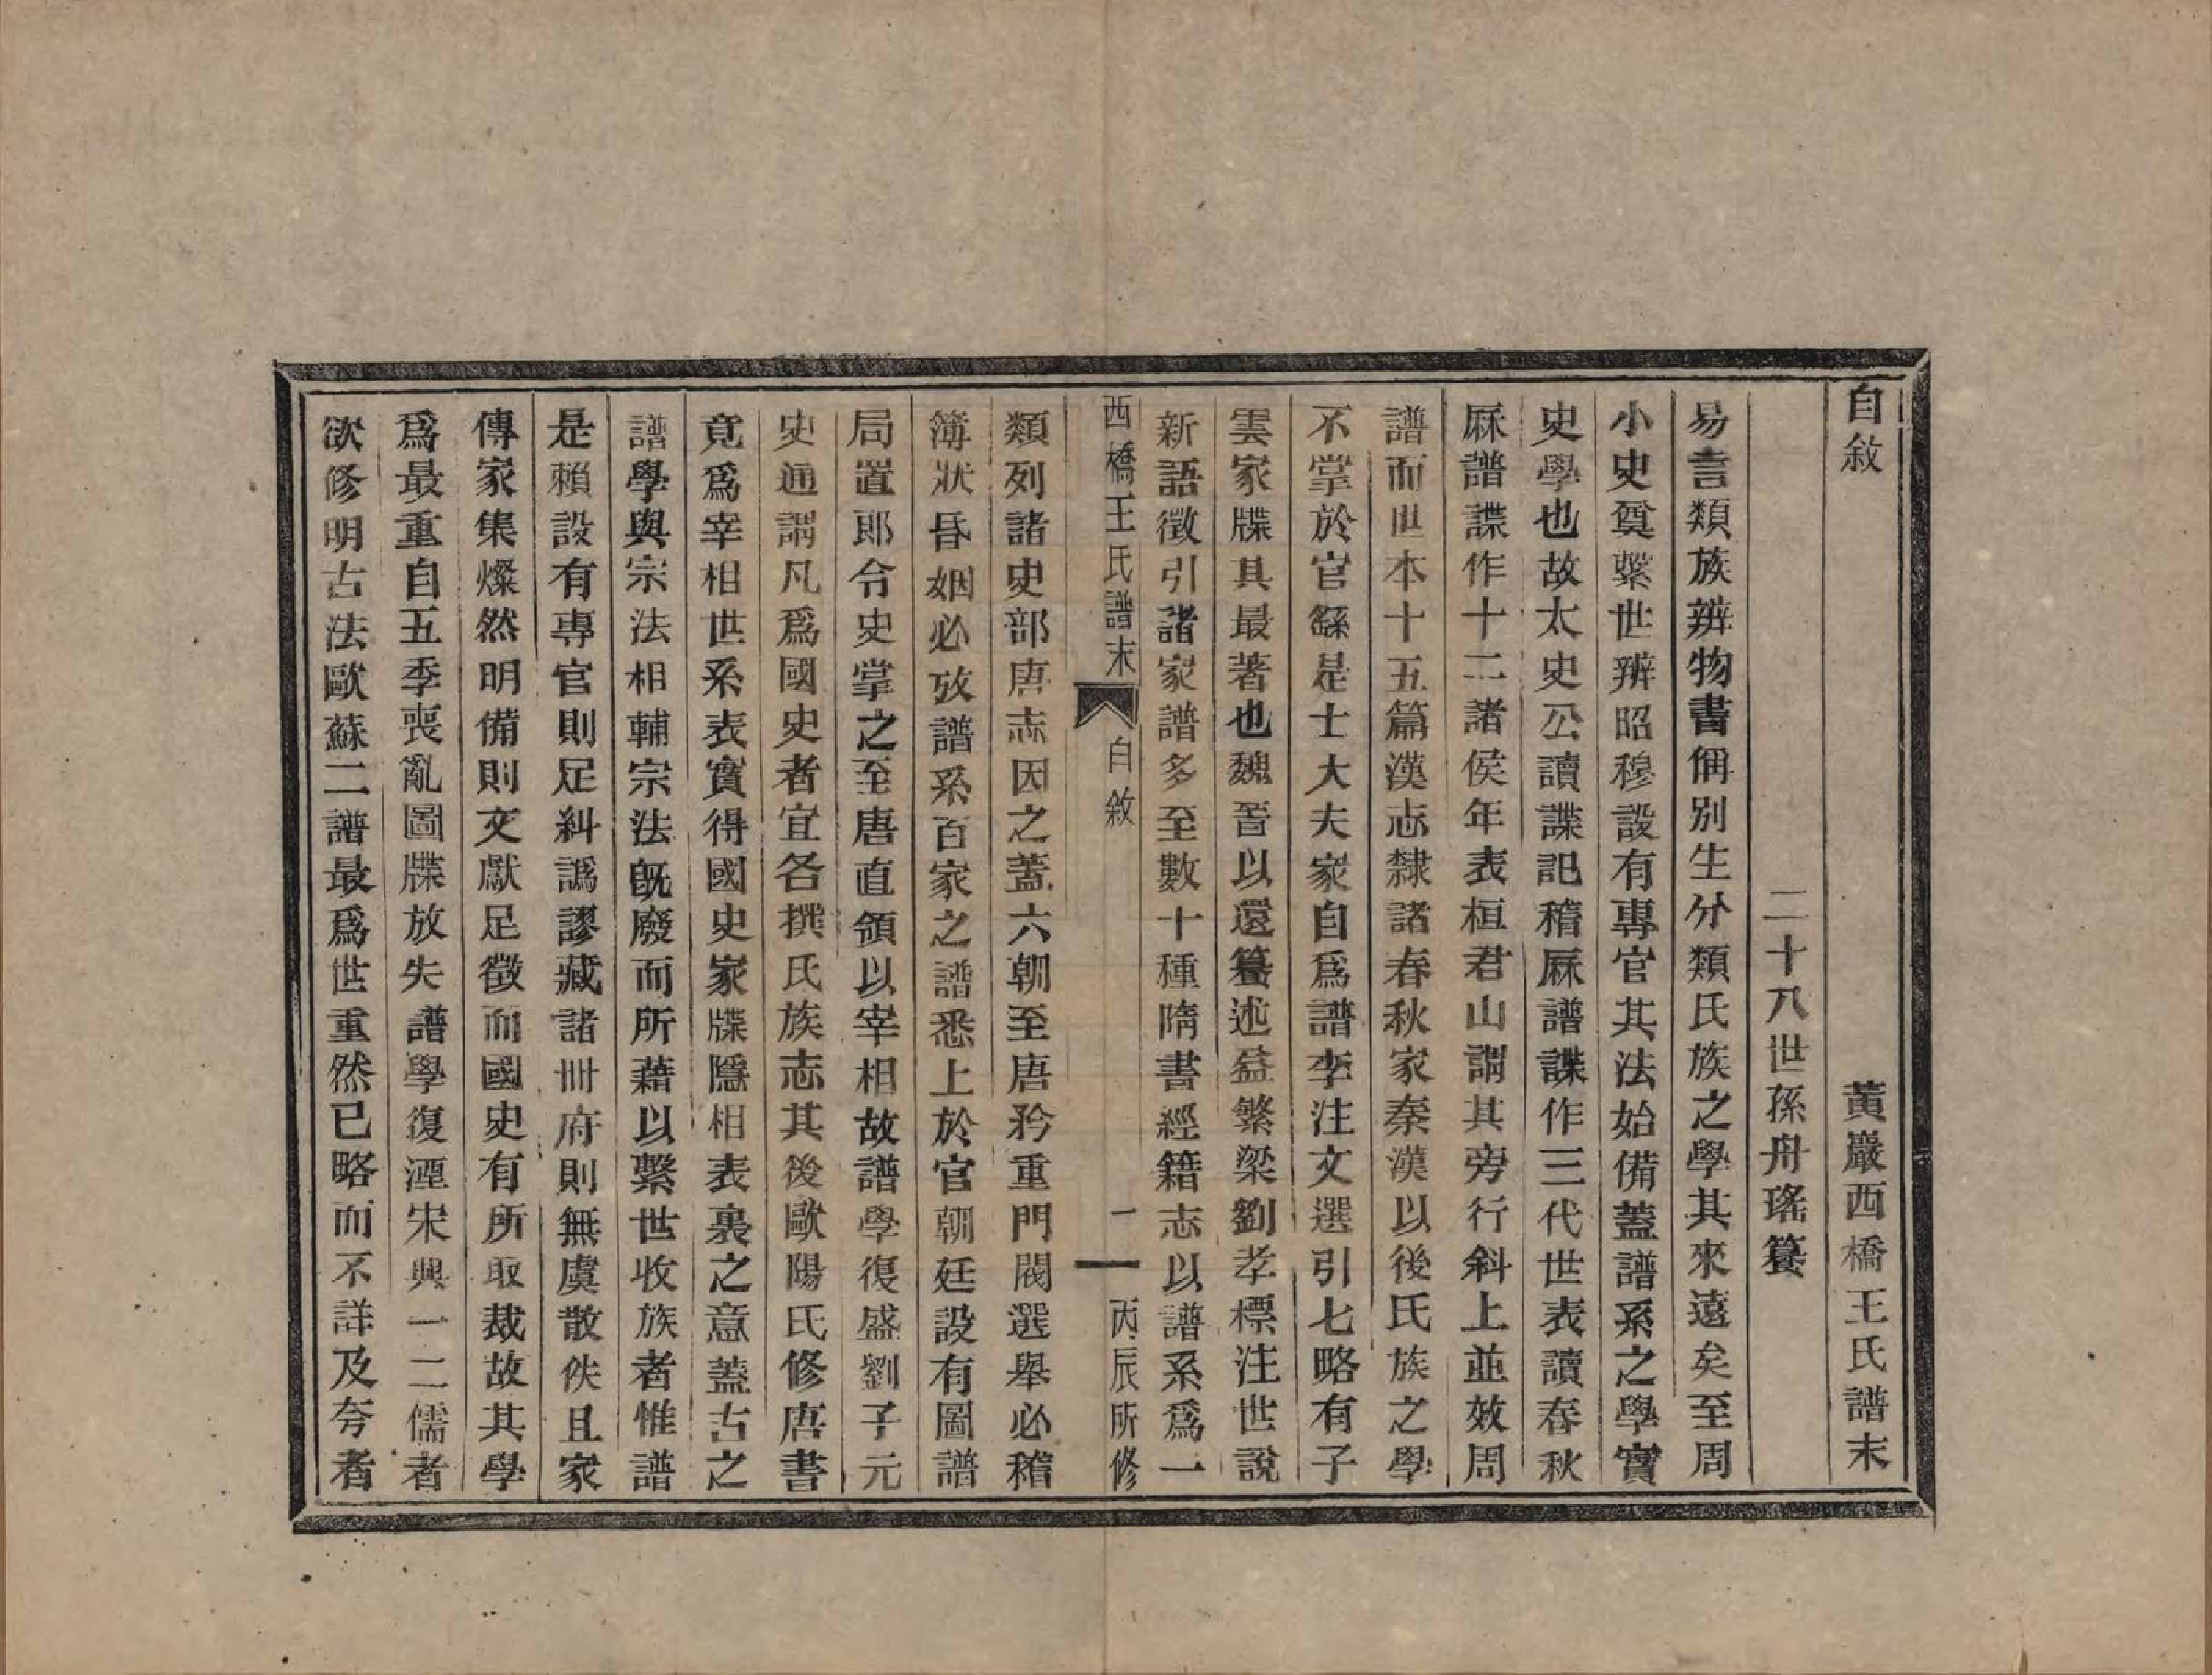 自敘 黃巖西橋王氏譜末
二十八世孫舟瑤簒
易言類族辨物書偁别生分類氏族之學其來遠矣至周
小史奠繫世辨昭穆設有專官其法始備蓋譜系之學實
史學也故太史公讀諜記稽厤譜諜作三代世表讀春秋
厤譜諜作十二諸侯年表桓君山謂其旁行斜上並效周
譜而世本十五篇漢志隸諸春秋家秦漢以後氏族之學
不掌於官繇是士大夫家自爲譜李注文選引七略有子
雲家牒其最著也魏晉以還簒述益繁梁劉孝標注世說
新語徵引諸家譜多至數十種隋書經籍志以譜系爲一
西橋王氏譜末 自敘 一 丙辰所修
類列諸史部唐志因之蓋六朝至唐矜重門閥選舉必稽
簿狀昏姻必攷譜系百家之譜悉上於官朝廷設有圖譜
局置郎令史掌之至唐直領以宰相故譜學復盛劉子元
史通謂凡爲國史者宜各撰氏族志其後歐陽氏修唐書
竟爲宰相世系表實得國史家牒隱相表裏之意蓋古之
譜學與宗法相輔宗法旣廢而所藉以繫世收族者惟譜
是賴設有專官則足糾譌謬藏諸冊府則無虞散佚且家
傳家集燦然明備則文獻足徵而國史有所取裁故其學
爲最重自五季喪亂圖牒放失譜學復湮宋興一二儒者
欲修明古法歐蘇二譜最爲世重然已略而不詳及夸者